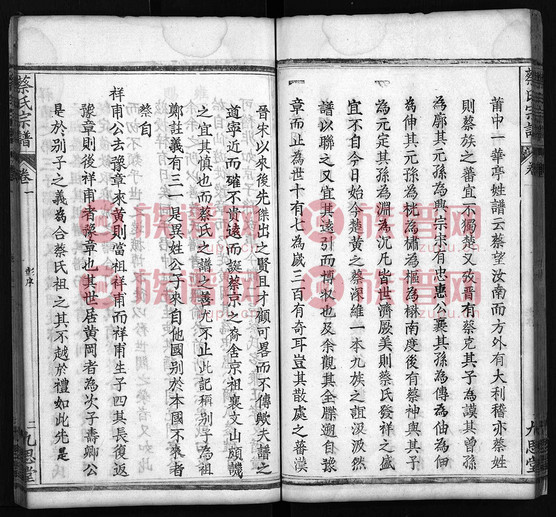 莆中一華亭姓譜云蔡望汝南而方外有大利稽亦蔡姓
則蔡族之蕃宜不獨楚又攷晉有蔡克其子為謨其曾孫
為廓其元孫為興宗宋有忠惠公襄其孫為傳為佃為佃
為伸其元孫為枕為橚為樞為楙南度後有蔡神與其子
為元定其孫為淵為沉凡皆世濟厥美則蔡氏發祥之盛
宜不自今日始今楚黄之蔡深維一本九族之誼汲汲然
譜以聯之又宜其遠引而博牧也及余觀其全牒遡自豫
章而止為世十有七為歲三百有奇耳豈其散處之蕃漠
晉宋以來後先傑出之賢且才顧可畧而不傳歟夫譜之
道寧近而確不貴遠而誕蔡京之裔含京祖襄文山頗譏
之宜其慎也而蔡氏之譜之善尤不止此記稱別子為祖
鄭註義有三一是異姓公子來自他國別於本國不來者
蔡自
祥甫公去豫章來黄則當祖祥甫而祥甫生子四其長復返
豫章則後祥甫者豫章也其世居黄岡者為次子壽卿公
是於別子之義為合蔡氏祖之其不越於禮如此先是
蔡氏宗譜
卷一
彭序
二
九思堂
蔡氏宗譜
卷一
九思堂
族譜网
zupu.cn
族譜网
zupu.cn